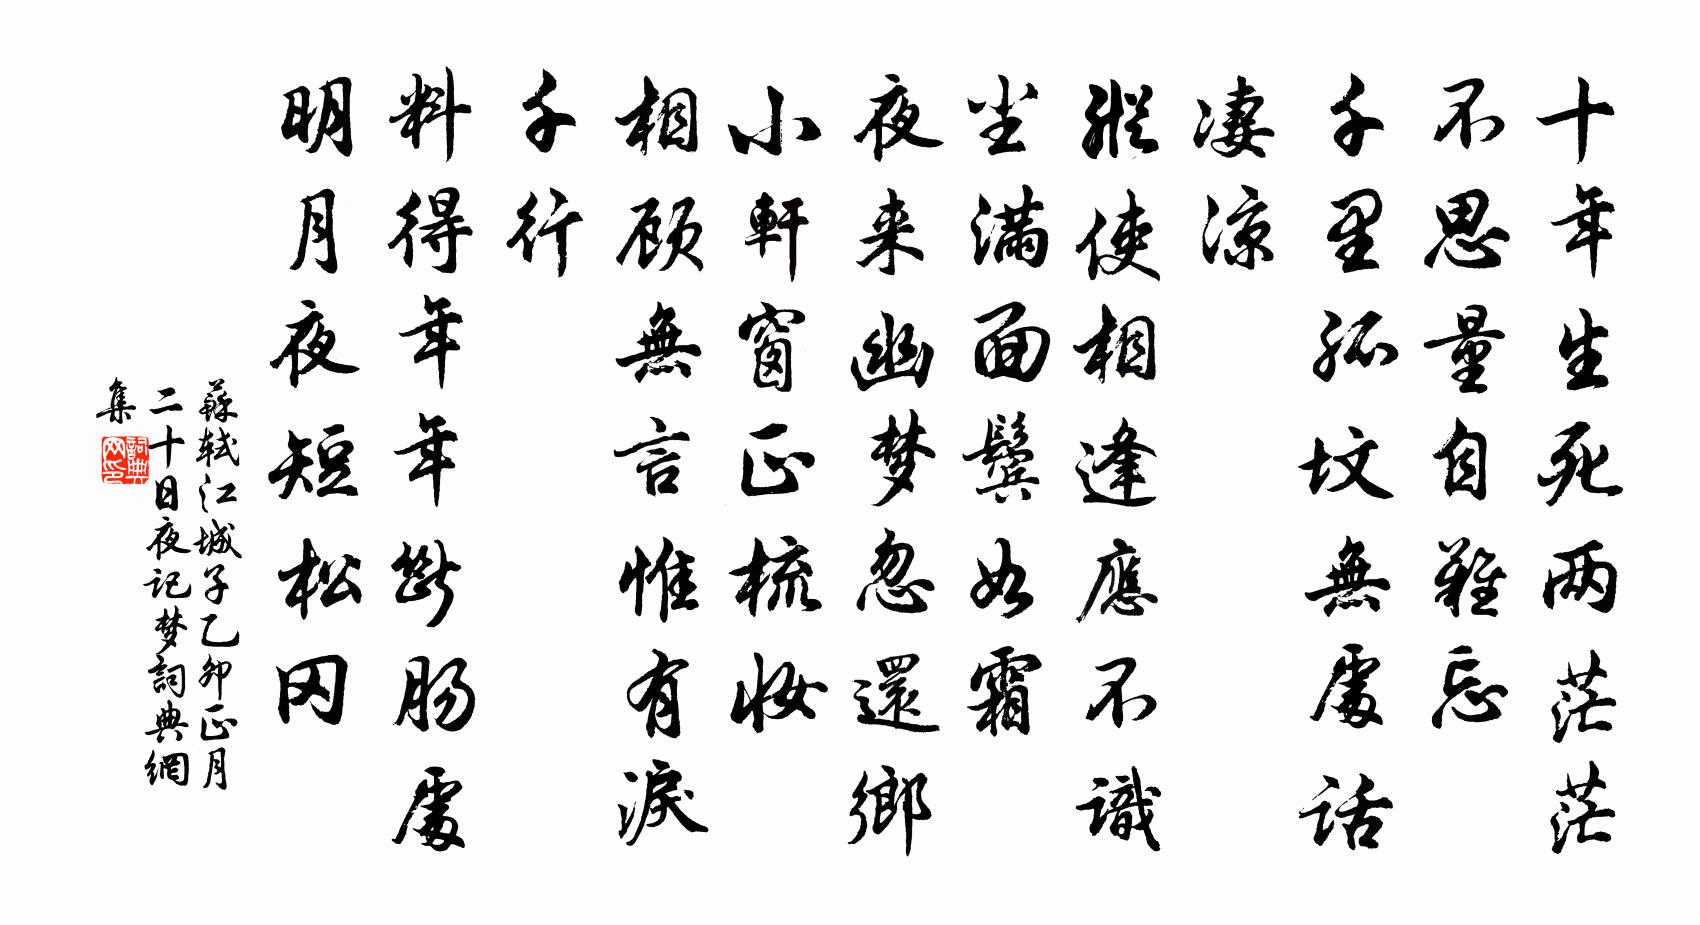 十年生死两茫茫
不思量自難忘
千里孤坟無處話
凄涼
縱使相逢應不識
尘满面鬓如霜
夜来幽梦忽還鄉
小軒窗正梳妆
相顾無言惟有淚
千行
料得年年斷肠處
明月夜短松冈
蘇轼江城子乙卯正月
二十日夜记梦詞典網
集
詞典
网印